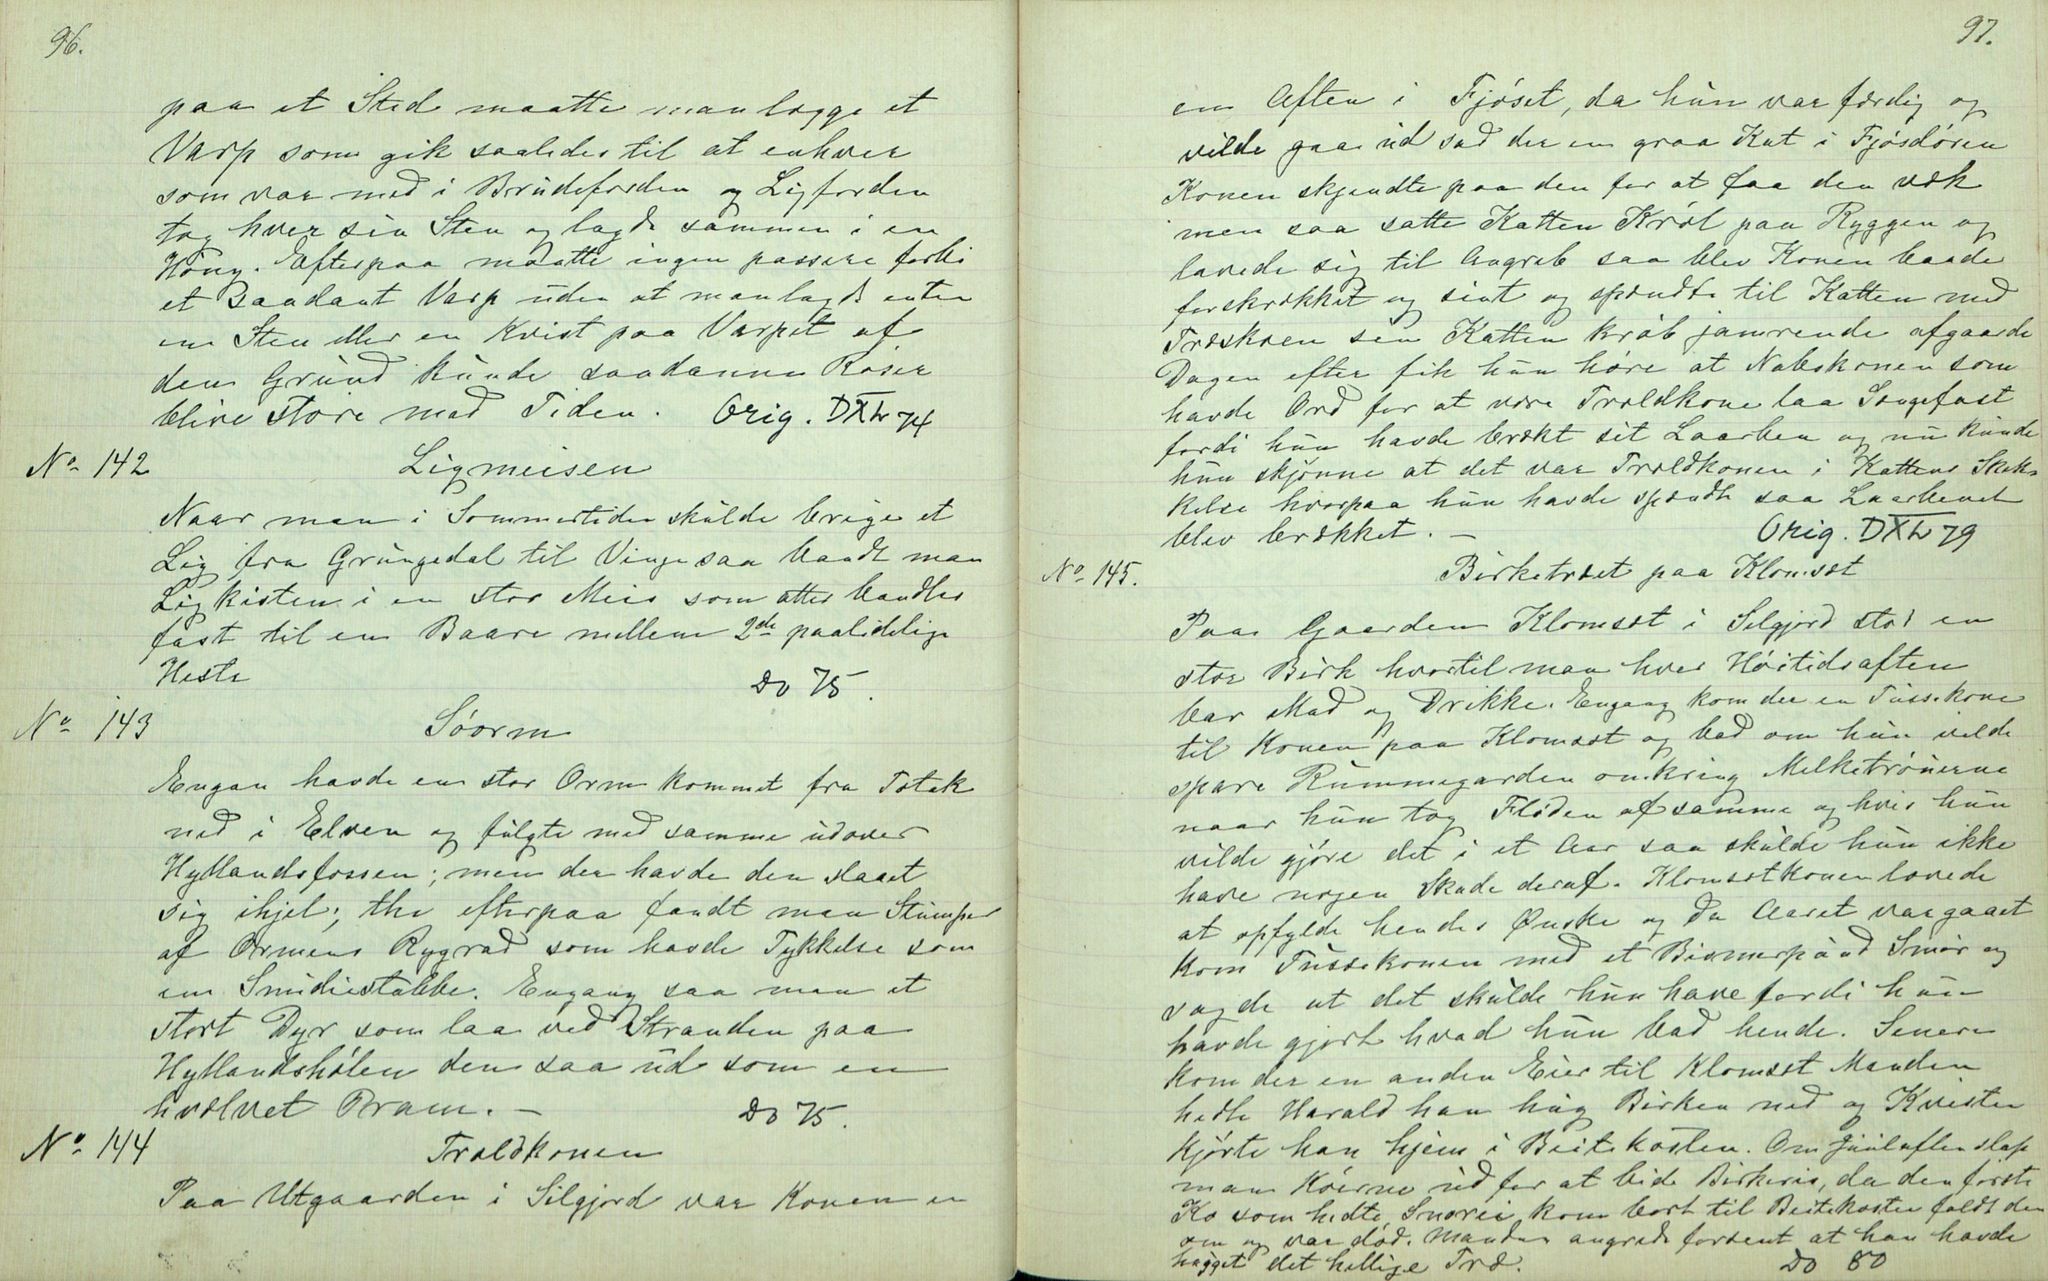 96.
paa et Sted maatte man lægge et
Varp som gik saaledes til at enhver
som var med i Brudeferden og Ligferden
tog hver sin Sten og lagde sammen i en
Høug. Efterpaa maatte ingen passere forbi
et saadant Varp uden at man lagde enten
en Sten eller en Kvist paa Varpet af
den Grund kunde saadanne Røser
blive store med Tiden. Orig. DXL 74
No 142 Ligmeisen
Naar man i Sommertiden skulde bringe et
Lig fra Grungedal til Vinje saa bandt man
Ligkisten i en stor Meis som atter bandtes
fast til en Baare mellem 2de paalidelige
Heste Do 75.
No 143 Söorm
Engan havde en stor Orm kommet fra Totak
ned i Elven og fulgte med samme udover
Hyllandsfossen; men der havde den slaaet
sig ihjel; thi efterpaa fandt man Stumper
af Ormens Rygrad som havde Tykkelse som
en Smidiestabbe. Engang saa man et
stort Dyr som laa ved Stranden paa
Hyllandshölen den saa ud som en
hvælvet Pram. — Do 75.
No 144 Troldkonen
Paa Utgaarden i Silgjord var Konen en
97.
en Aften i Fjöset, da hun var færdig og
vilde gaa ud sad der en graa Kat i Fjösdören
Konen skjendte paa den for at faa den væk
men saa satte Katten Krøl paa Ryggen og
lavede sig til Angreb saa blev Konen baade
forskrækket og sint og spændte til Katten med
Træskoen sin Katten krøb jamrende afgaarde
Dagen efter fik hun høre at Nabokonen som
havde Ord for at være Troldkone laa Sengefast
fordi hun havde brækt sit Laarben og nu kunde
hun skjønne at det var Troldkonen i Kattens Skik-
kelse hvorpaa hun havde spændt saa Laarbenet
blev brækket. — Orig. DXL 79
No 145. Birketræet paa Klomset
Paa Gaarden Klomset i Silgjord stod en
stor Birk hvortil man hver Høitidsaften
bar Mad og Drikke. Engang kom der en Tussekone
til Konen paa Klomset og bad om hun vilde
spare Rummegarden omkring Melketrøuerne
naar hun tog Fløden af samme og hvis hun
vilde gjøre det i et Aar saa skulde hun ikke
have nogen Skade deraf. Klomsetkonen lovede
at opfylde hendes Ønske og da Aaret var gaaet
kom Tussekonen med et Bismerpund Smør og
sagde at det skulde hun have fordi hun
havde gjort hvad hun bad hende. Senere
kom der en anden Eier til Klomset Manden
hedte Harald han hug Birken ned og Kvisten
kjørte han hjem i Beitekosten. Om Juulaften slap
man Køerne ud for at bide Birkeris, da den første
Ko som hedte Snorei kom bort til Beitekosten faldt den
om og var død. Manden angrede forsent at han havde
hugget det hellige Træ. Do 80